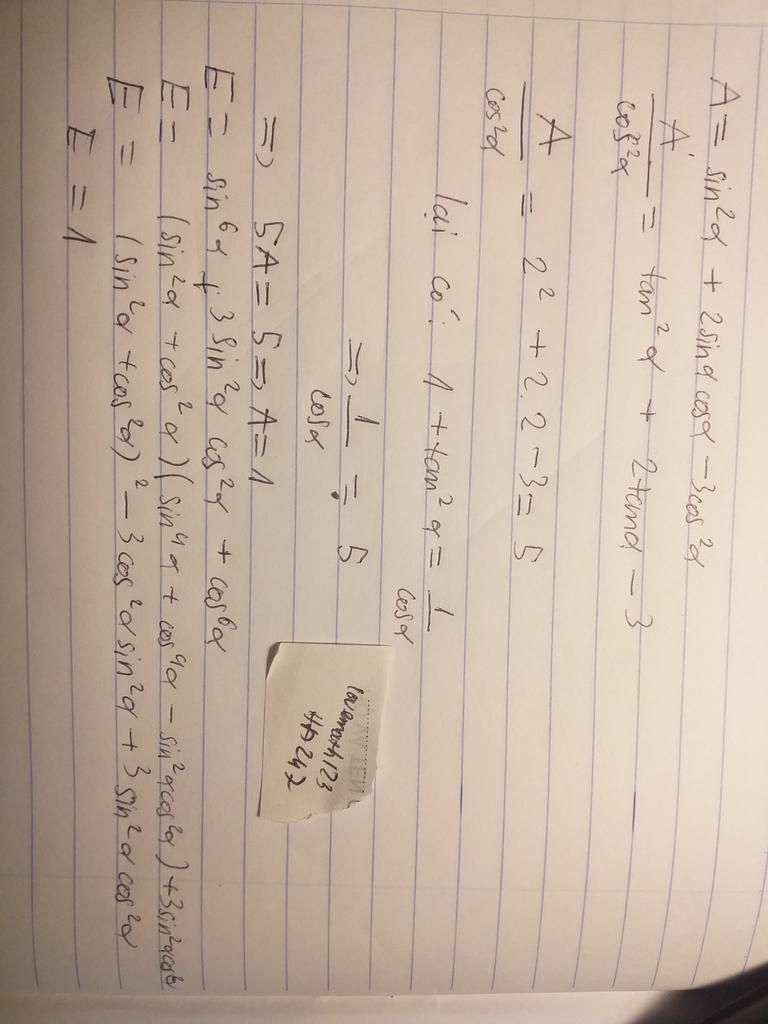 A = sin²α + 2sinα cosα - 3cos²α
A/cos²α = tan²α + 2tanα - 3
A/cos²α = 2² + 2.2 - 3 = 5
lại có: 1 + tan²α = 1/cosα
=> 1/cosα = 5
=> 5A = 5 => A = 1
E = sin⁶α + 3sin²α cos²α + cos⁶α
E = (sin²α + cos²α)(sin⁴α + cos⁴α - sin²αcos²α) + 3sin²αcos²α
E = (sin²α + cos²α)² - 3cos²αsin²α + 3sin²αcos²α
E = 1